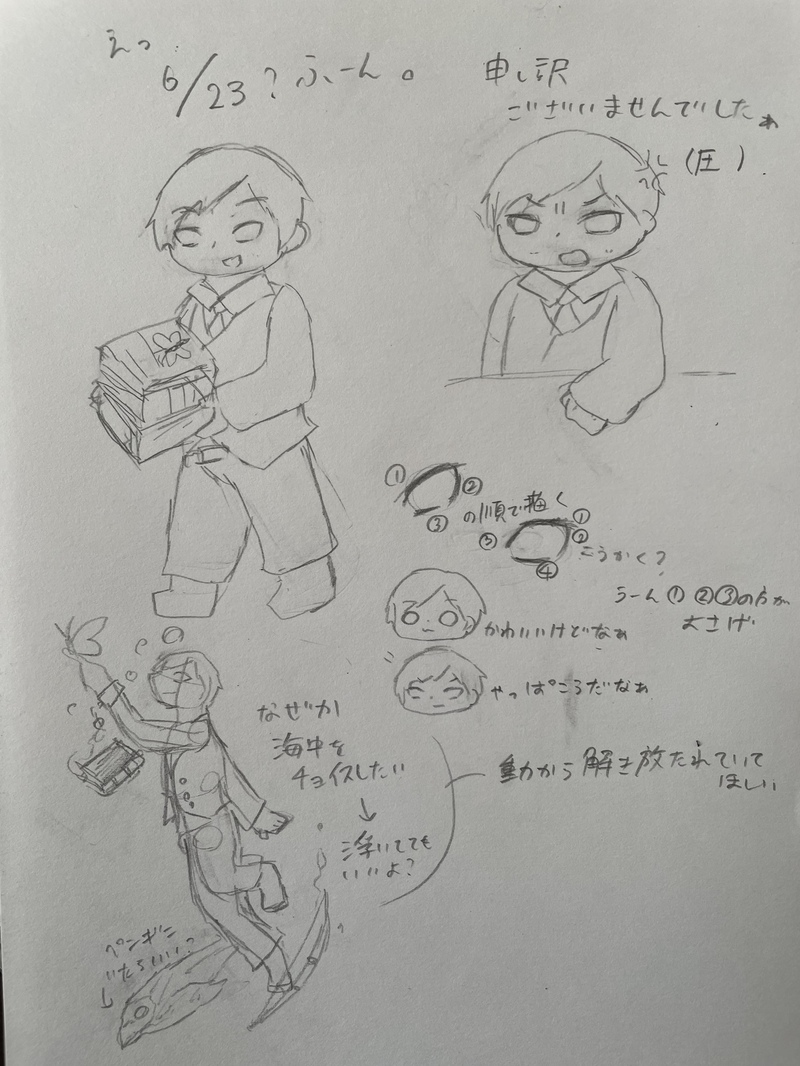 えっ
6/23?ふーん。
申し訳
ございませんでした
(圧)
① ② ③ の順で描く
① ② ③ ④ こうかく?
うーん①②③の方が
よさげ
かわいいけどなぁ
やっぱこうだなぁ
なぜか
海中を
チョイスしたい
↓
浮いてても
いいよ?
動から解き放たれていて
ほしい
ペンギン
いたらいい?
↓